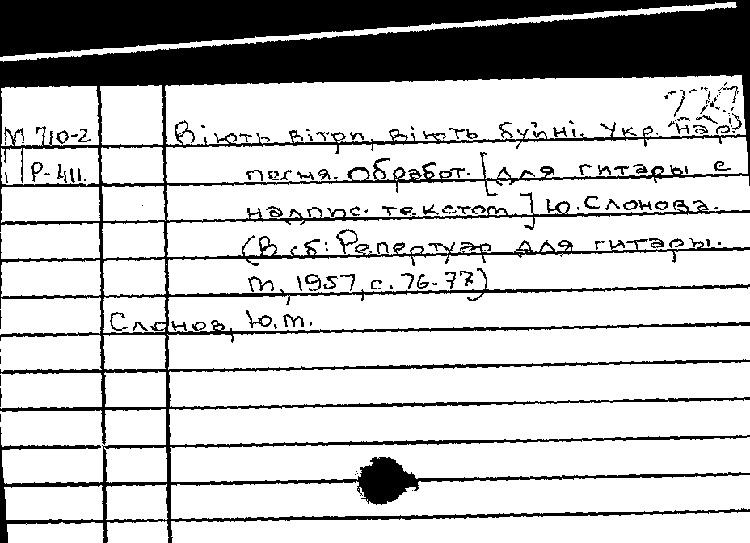 229
М 710-2 Віють вітри, віють буйні. Укр. нар
П Р-411. песня. Обработ. [для гитары с
надпис. текстом] Ю. Слонова.
(В сб: Репертуар для гитары.
М., 1957, с. 76-77)
Слонов, Ю.М.